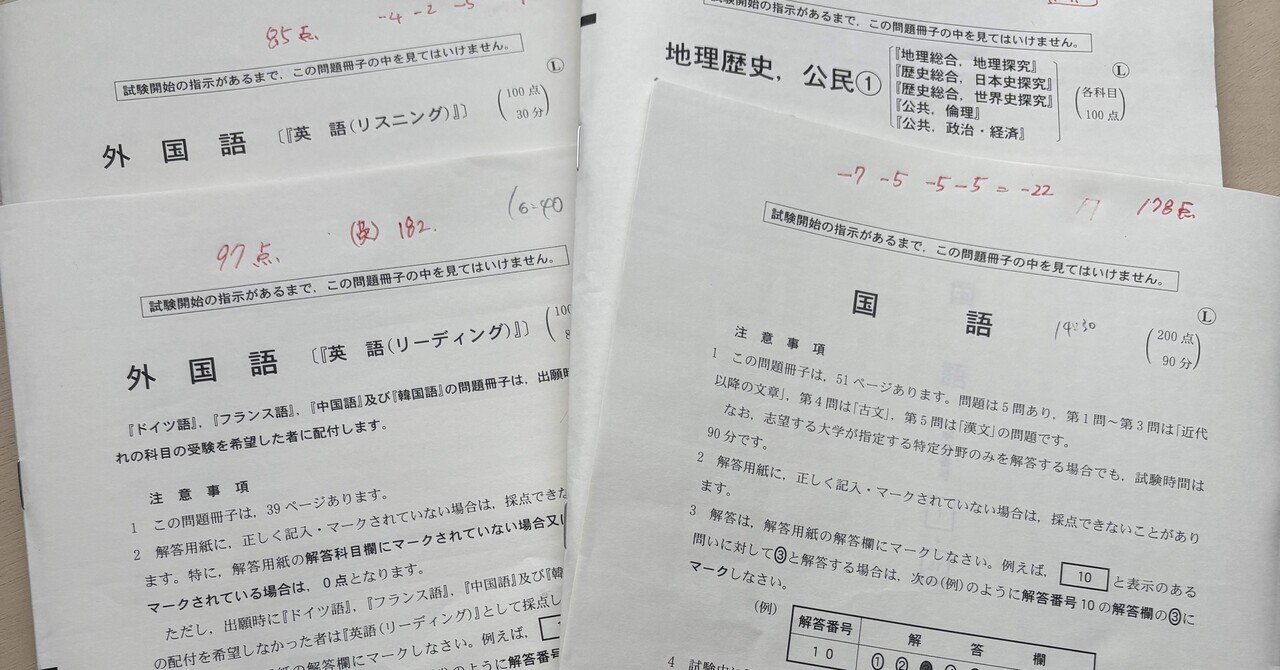 85点 -4 -2 -5
試験開始の指示があるまで，この問題冊子の中を見てはいけません。
Ⓛ
外 国 語 〔『英 語(リスニング)』〕 (100点 30分)
97点 (英) 182.
試験開始の指示があるまで，この問題冊子の中を見てはいけません。
外 国 語 〔『英 語(リーディング)』〕
『ドイツ語』，『フランス語』，『中国語』及び『韓国語』の問題冊子は，出願時
れの科目の受験を希望した者に配付します。
注 意 事 項
1 この問題冊子は，39ページあります。
2 解答用紙に，正しく記入・マークされていない場合は，採点できな
ます。特に，解答用紙の解答科目欄にマークされていない場合又に
マークされている場合は，0点となります。
ただし，出願時に『ドイツ語』，『フランス語』，『中国語』及び『韓
の配付を希望しなかった者は『英語(リーディング)』として採点し
マークしなさい。例えば，
のように解答番号
試験開始の指示があるまで，この問題冊子の中を見てはいけません。
Ⓛ
地理歴史，公民①
『地理総合，地理探究』
『歴史総合，日本史探究』
『歴史総合，世界史探究』
『公共，倫理』
『公共，政治・経済』
(各科目 100点)
-7 -5 -5 -5 = -22 178点
試験開始の指示があるまで，この問題冊子の中を見てはいけません。
Ⓛ
国 語 14:30 (200点 90分)
注 意 事 項
1 この問題冊子は，51ページあります。問題は5問あり，第1問～第3問は「近代
以降の文章」，第4問は「古文」，第5問は「漢文」の問題です。
なお，志望する大学が指定する特定分野のみを解答する場合でも，試験時間は
90分です。
2 解答用紙に，正しく記入・マークされていない場合は，採点できないことがあり
ます。
3 解答は，解答用紙の解答欄にマークしなさい。例えば，10と表示のある
問いに対して③と解答する場合は，次の(例)のように解答番号10の解答欄の③に
マークしなさい。
(例)
解答番号 解 答 欄
10 ① ②
4 試験中に